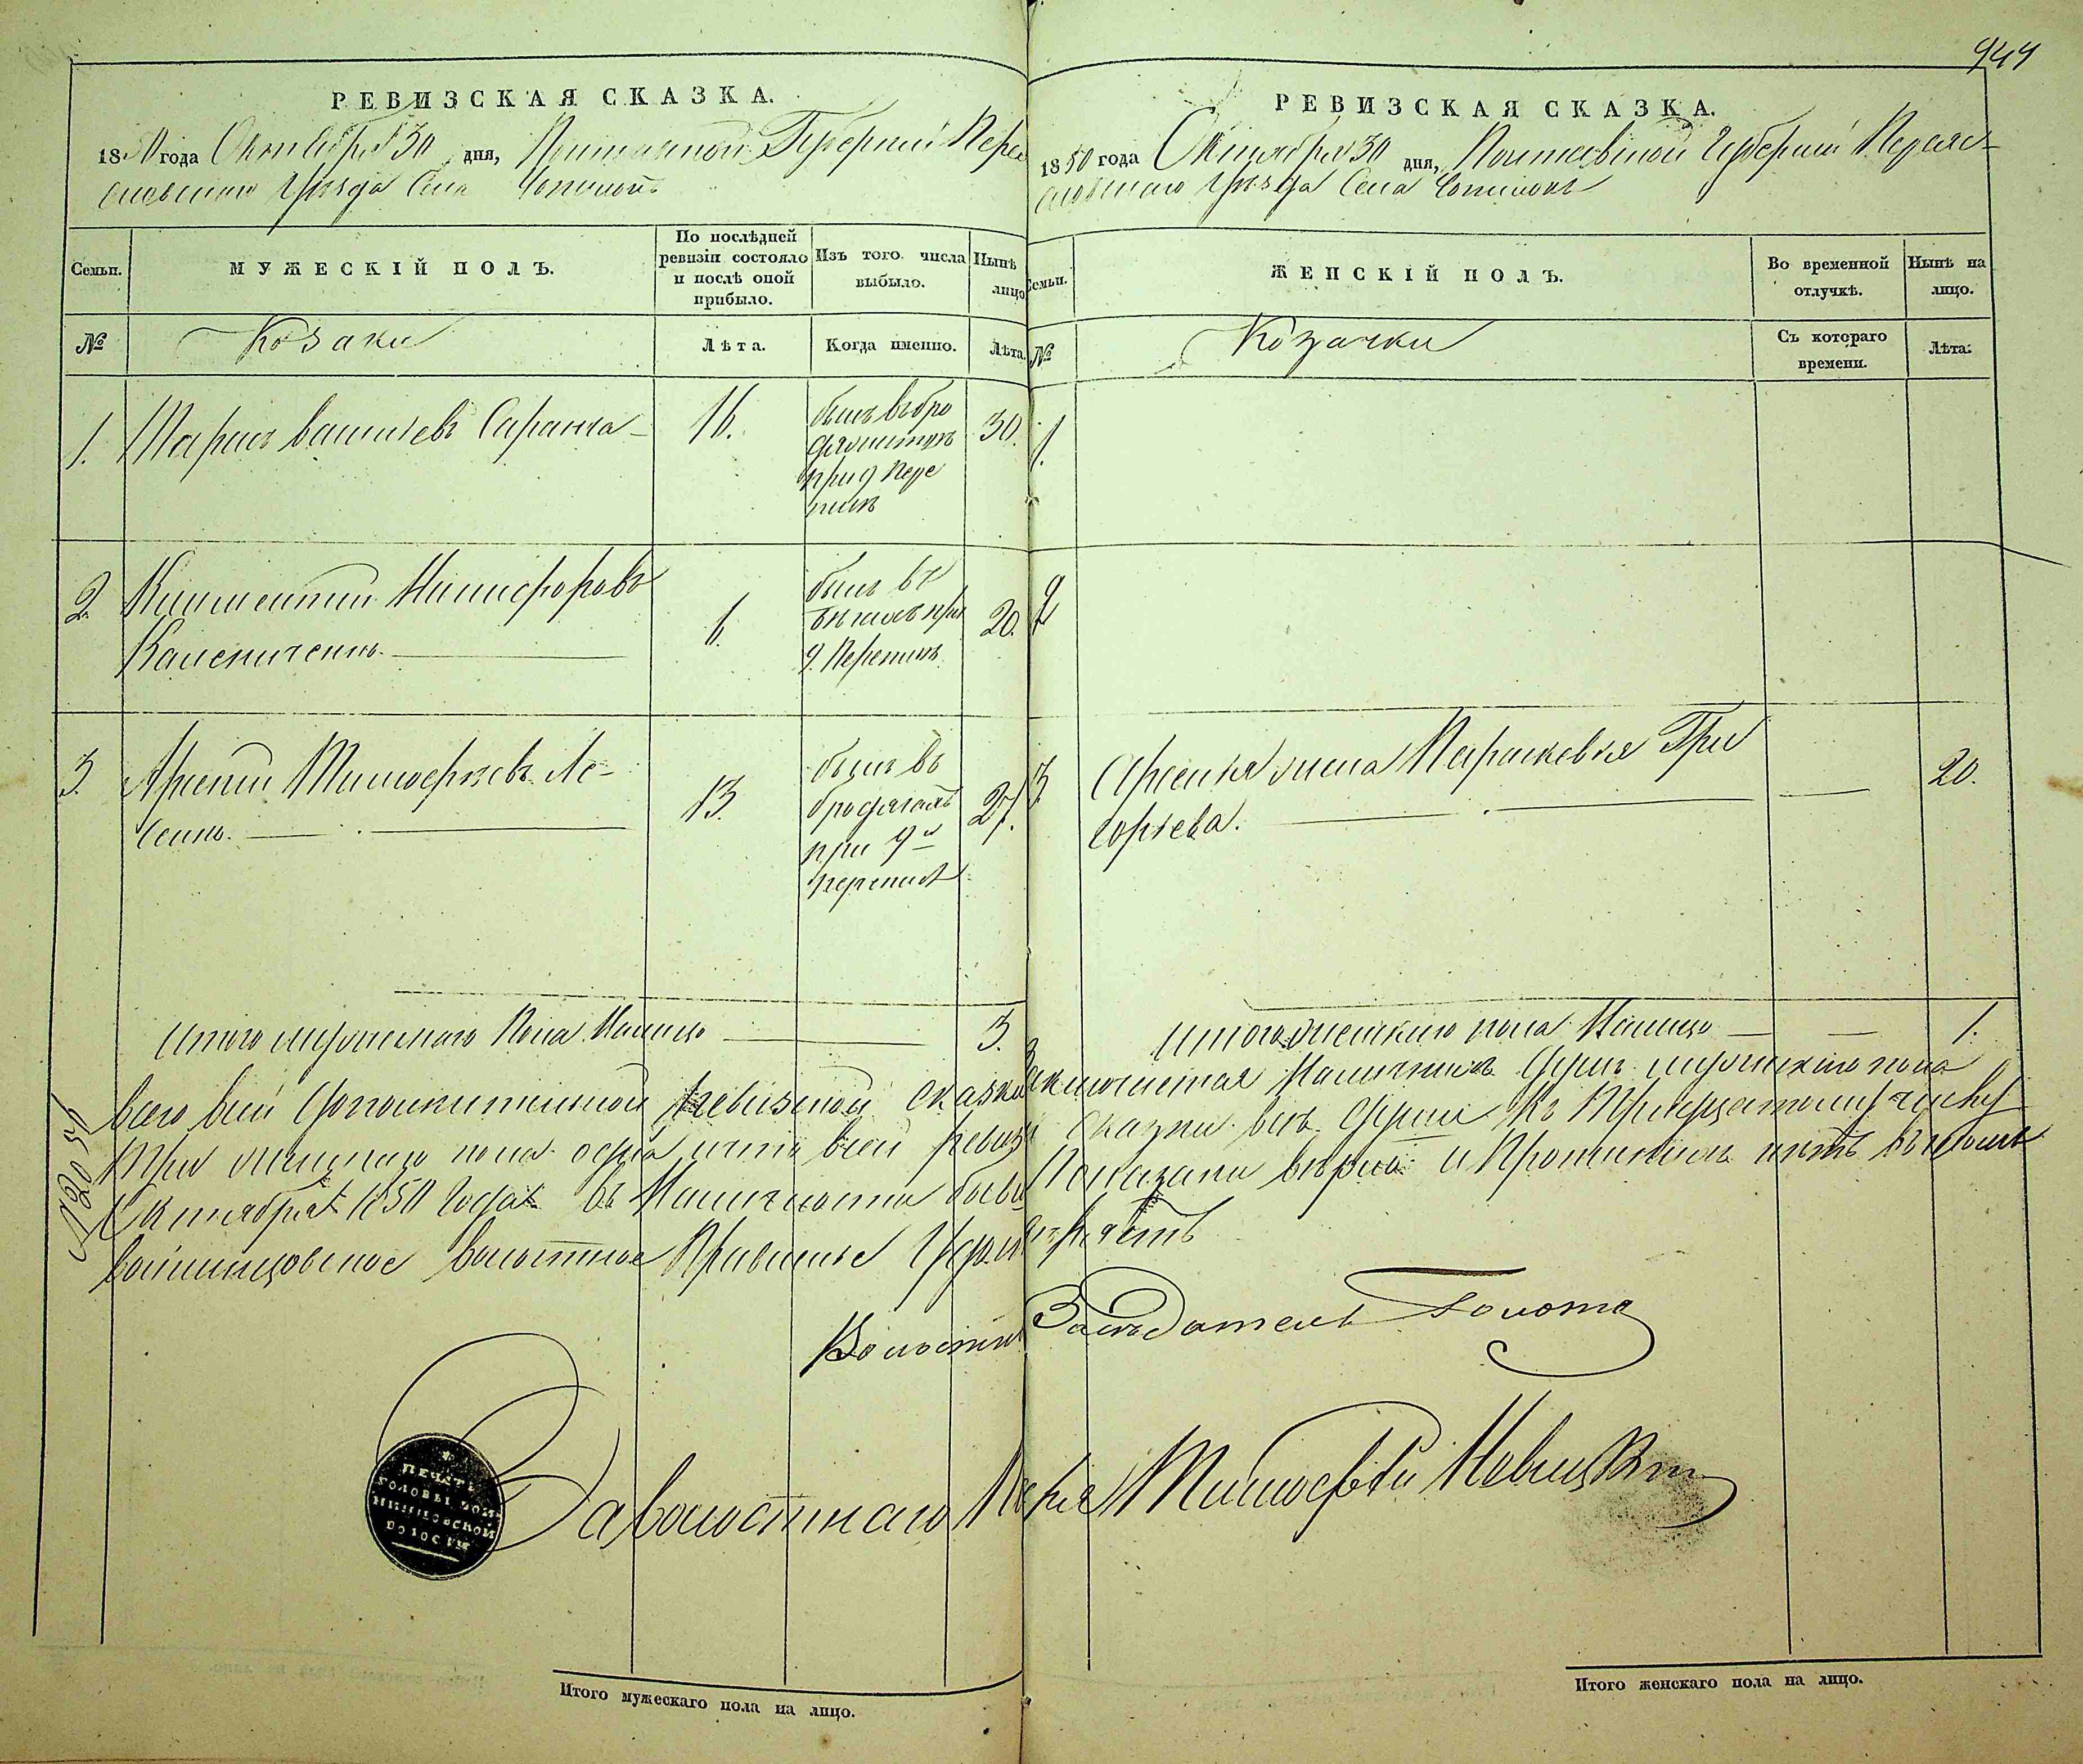 944
РЕВИЗСКАЯ СКАЗКА.
1850 года Октября 30 дня, Полтавской Губернии Перея
славского Уезда Села
Семьи.
МУЖЕСКІЙ ПОЛЪ.
По послѣдней ревизіи состояло и послѣ оной прибыло.
Изъ того числа выбыло.
Нынѣ лицо
№
Козаки
Лѣта.
Когда именно.
Лѣта.
1.
Тарасъ Васильевъ Саранча
16.
былъ в бро
дяжестве
при 9 пере
писи
30.
2.
Климентий Никифоровъ
Калениченко.
6.
былъ в
бегахъ при
9. Переписи
20.
3.
Арсений Тимофеевъ Ле-
сенко.
13.
былъ въ
бродягахъ
при 9й
переписи
27.
Итого мужескаго Пола Налицо
3.
РЕВИЗСКАЯ СКАЗКА.
1850 года Октября 30 дня, Полтавской Губернии Переяс-
лавского Уезда Села
Семьи.
ЖЕНСКІЙ ПОЛЪ.
Во временной отлучкѣ.
Нынѣ на лицо.
№
Козачки
Съ котораго времени.
Лѣта:
1.
2
3.
Арсения жена Параскевия Гри
горьева.
20.
Итого женскаго пола Налицо
1.
Всего в сей дополнительной ревизской сказки заключается Наличныхъ душъ мужескаго пола
три женскаго пола одна что в сей ревизской сказки все души къ Тридцатому числу
Октября 1850 года въ Наличности бывшие Показаны верно
волостное Правление
Волостный Заседатель Голота
За волостнаго Писаря Тимофей Невицкий
ПЕЧАТЬ
ГОЛОВЫ ВОЙ
НИНЦОВСКОЙ
ВОЛОСТИ
Итого мужескаго пола на лицо.
Итого женскаго пола на лицо.